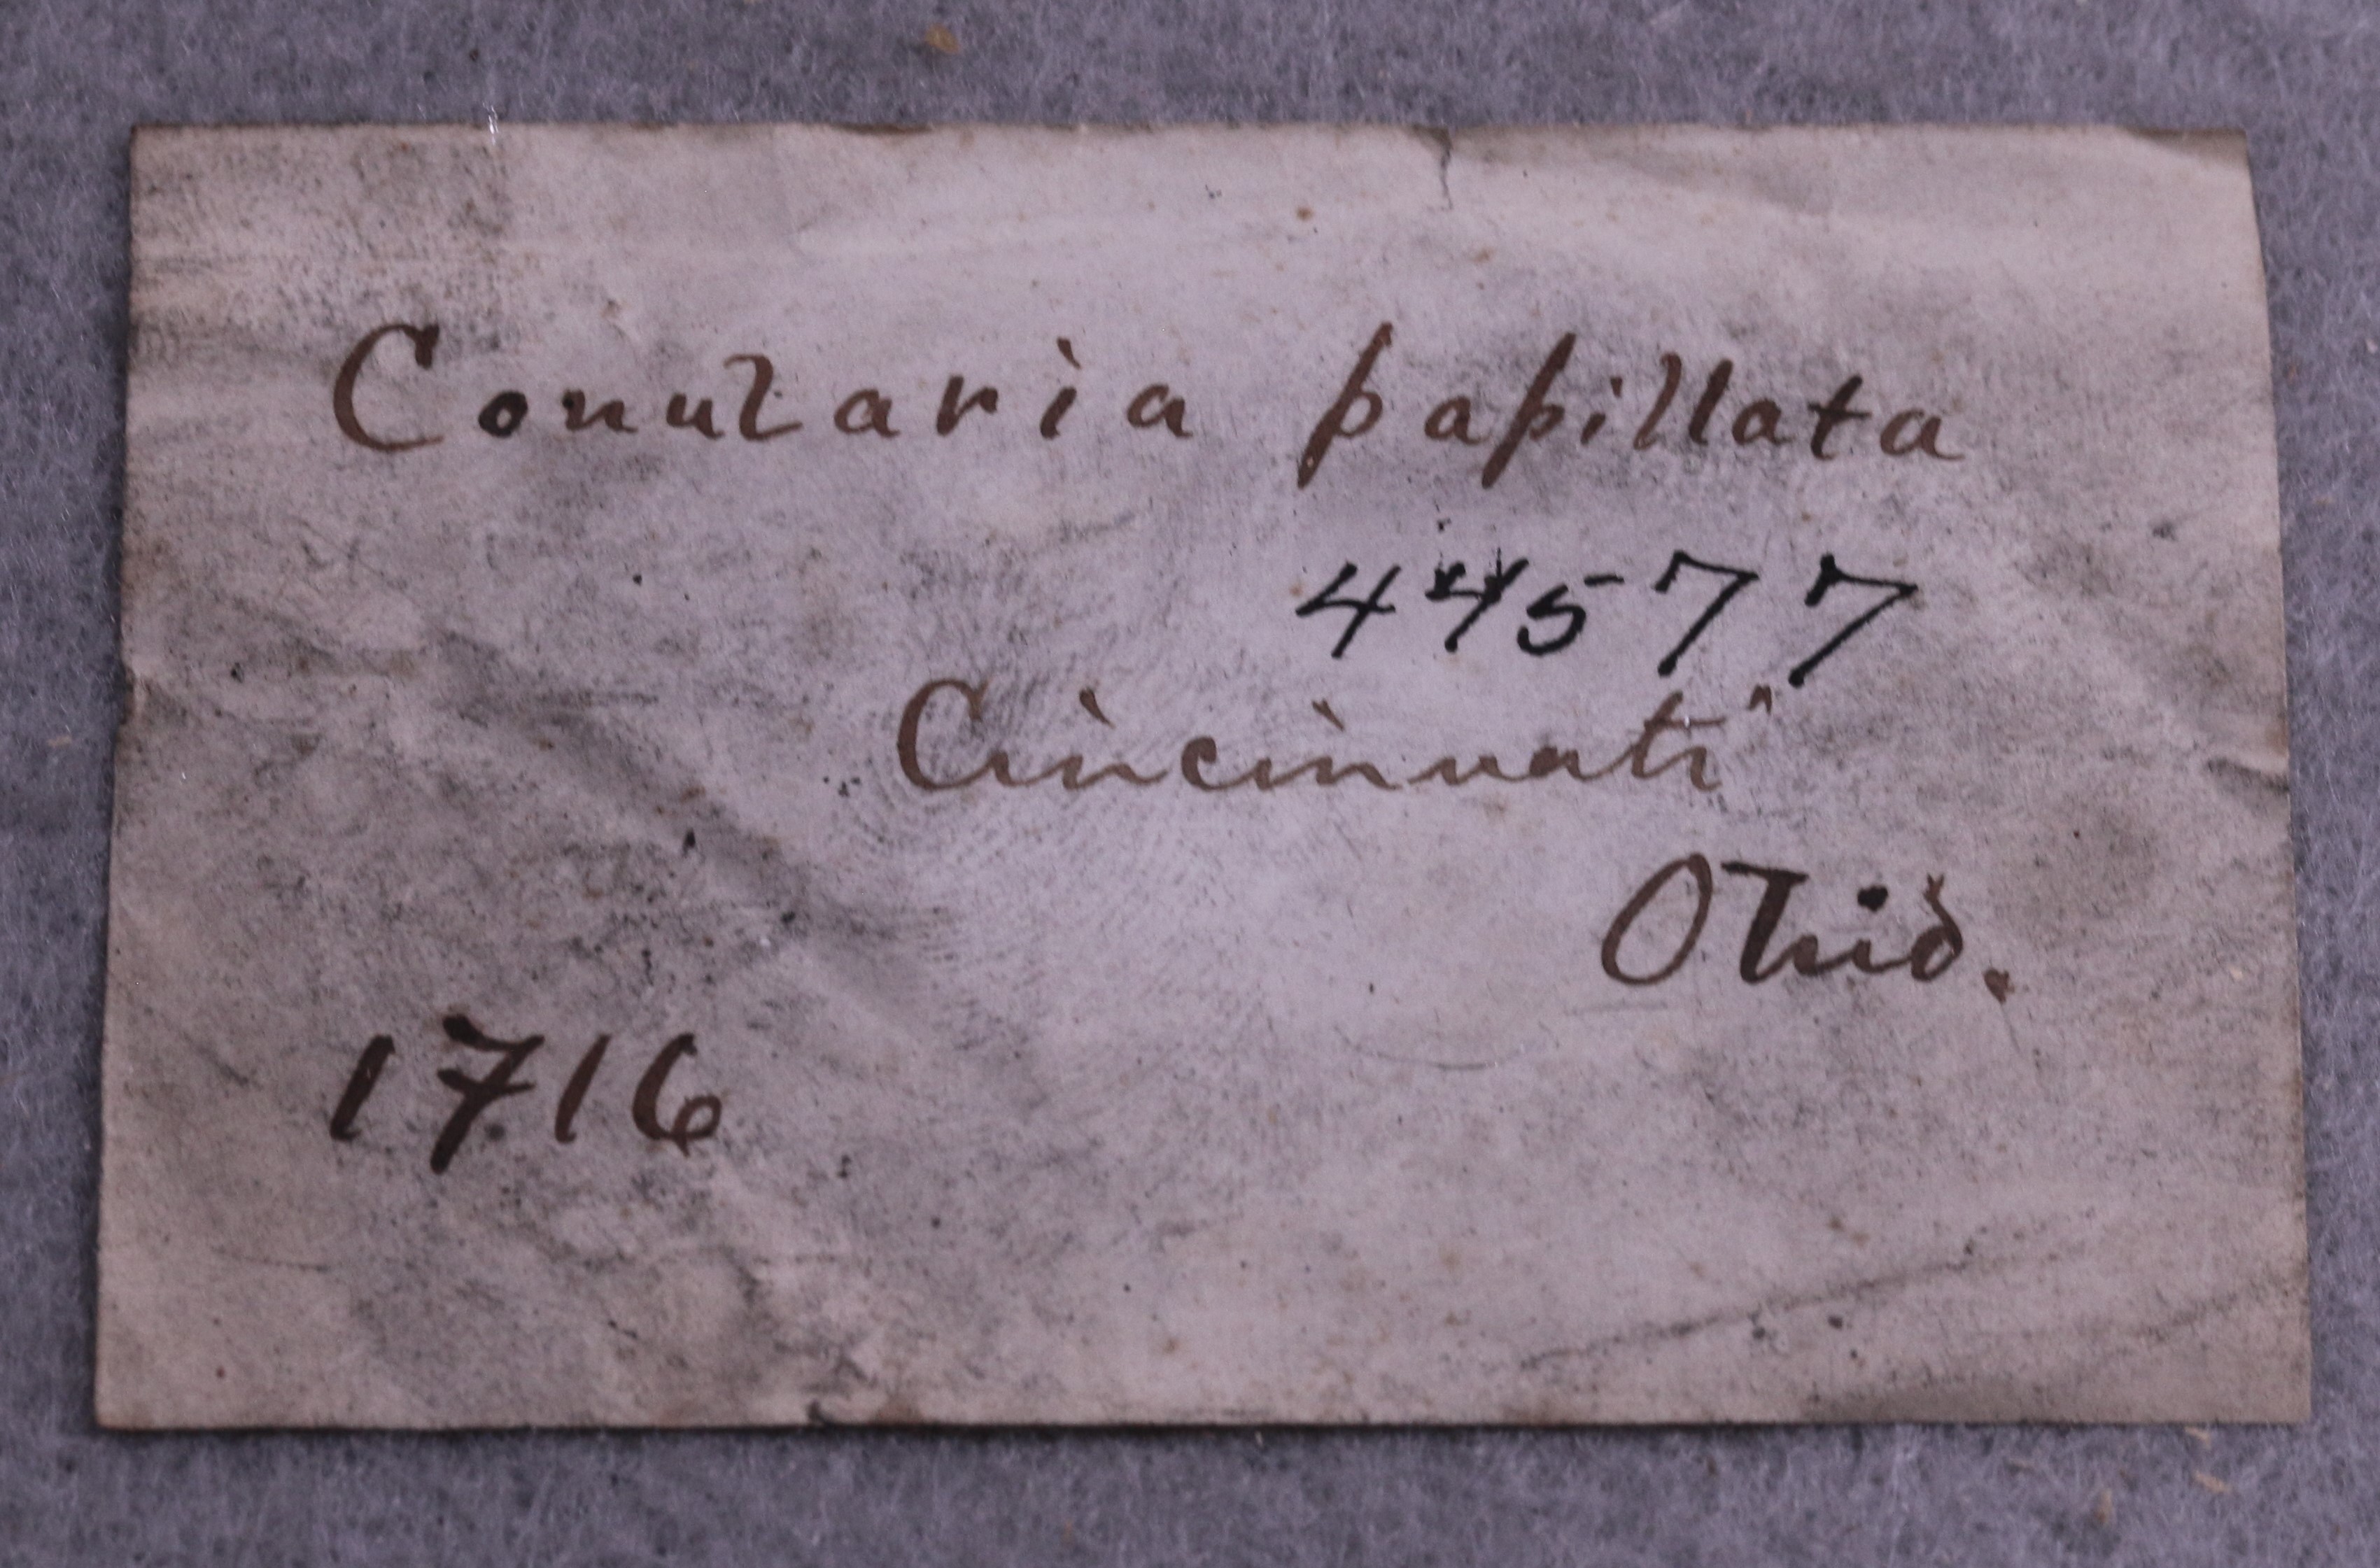 Conularia papillata
44577
Cincinnati
Ohio.
1716